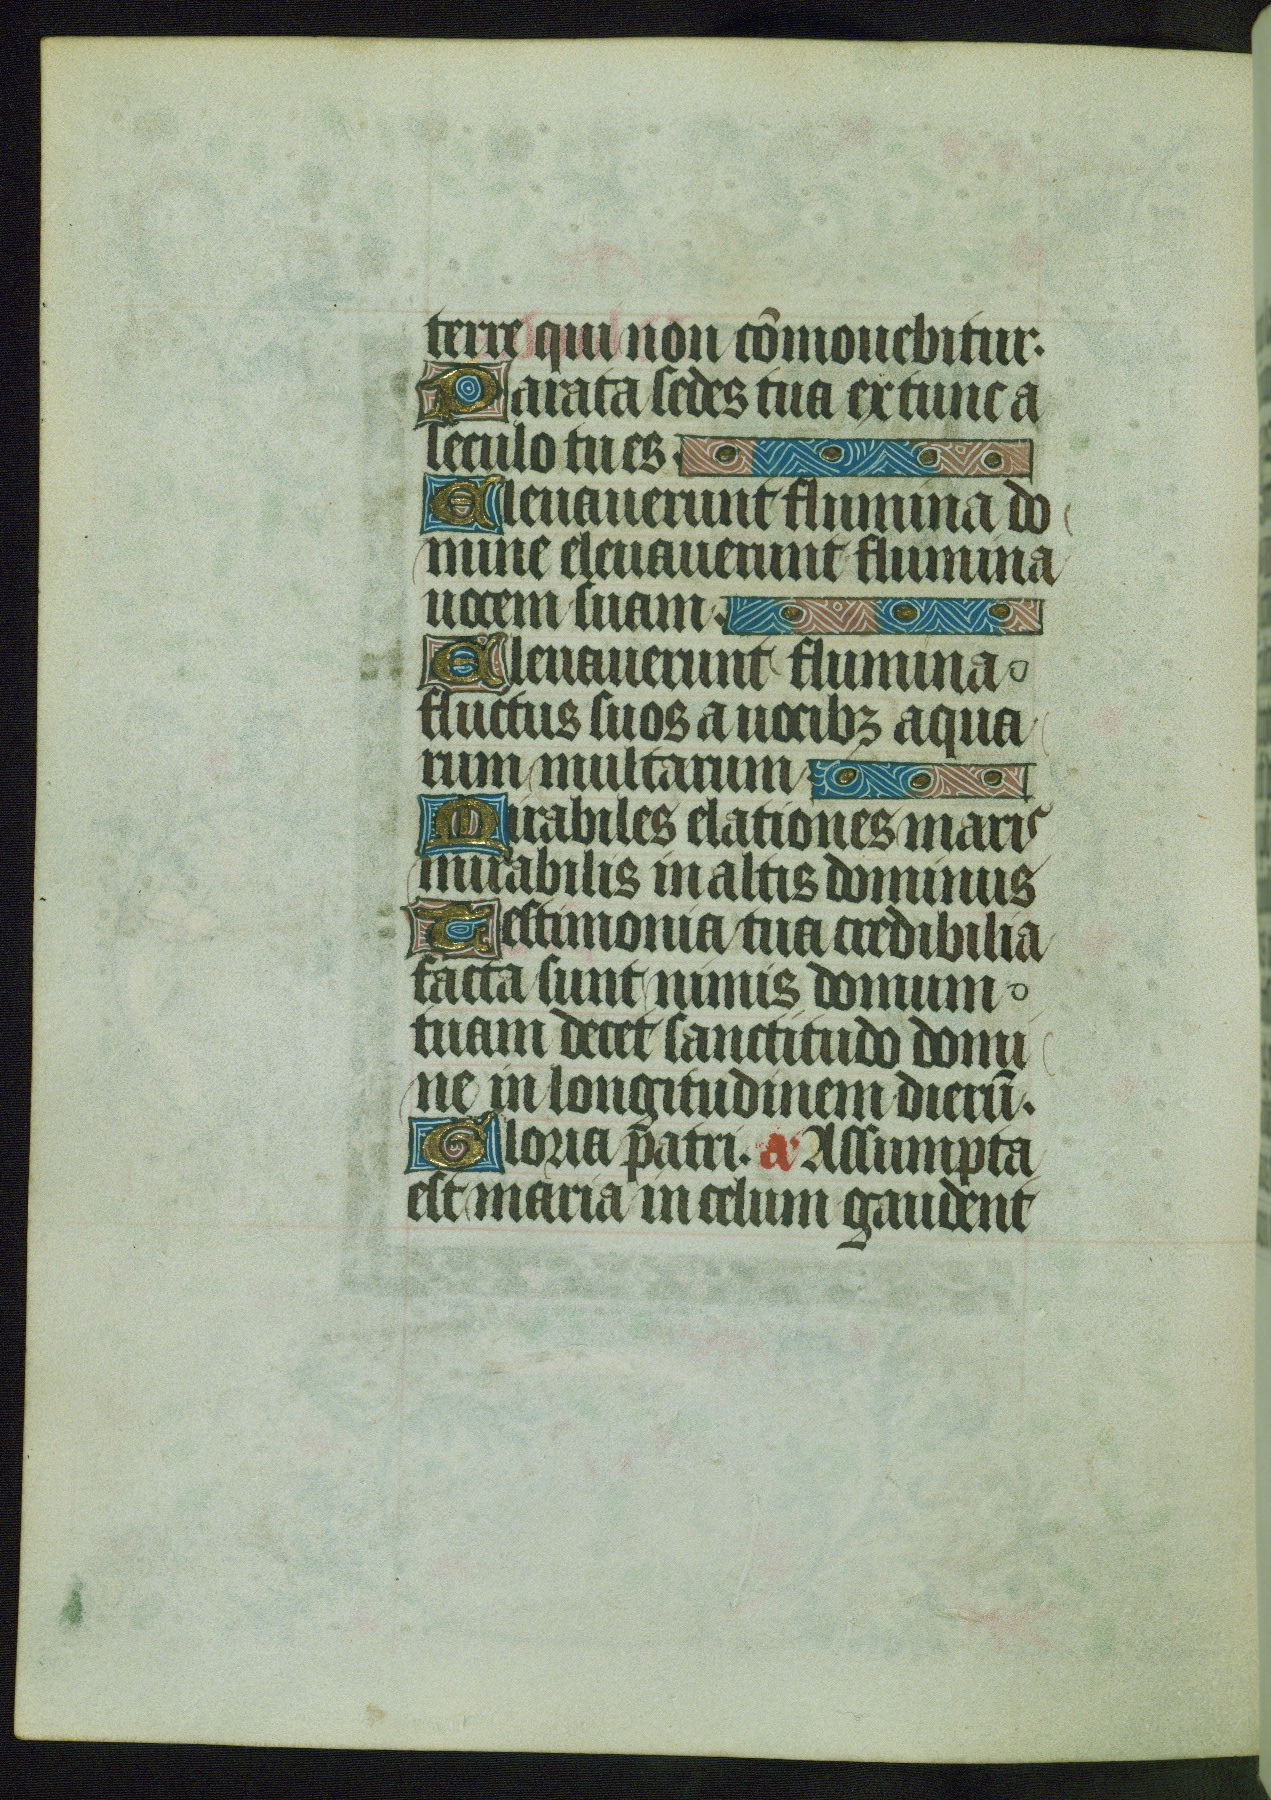 terre qui non cõmouebitur.
Parata sedes tua ex tunc a
seculo tu es.
Eleuauerunt flumina do
mine eleuauerunt flumina
uocem suam.
Eleuauerunt flumina
fluctus suos a uocibꝫ aqua
rum multarum
Mirabiles elationes maris
mirabilis in altis dominus
Testimonia tua credibilia
facta sunt nimis domum
tuam decet sanctitudo domi
ne in longitudinem dierũ.
Gloria p̃atri. a Assumpta
est maria in celum gaudent